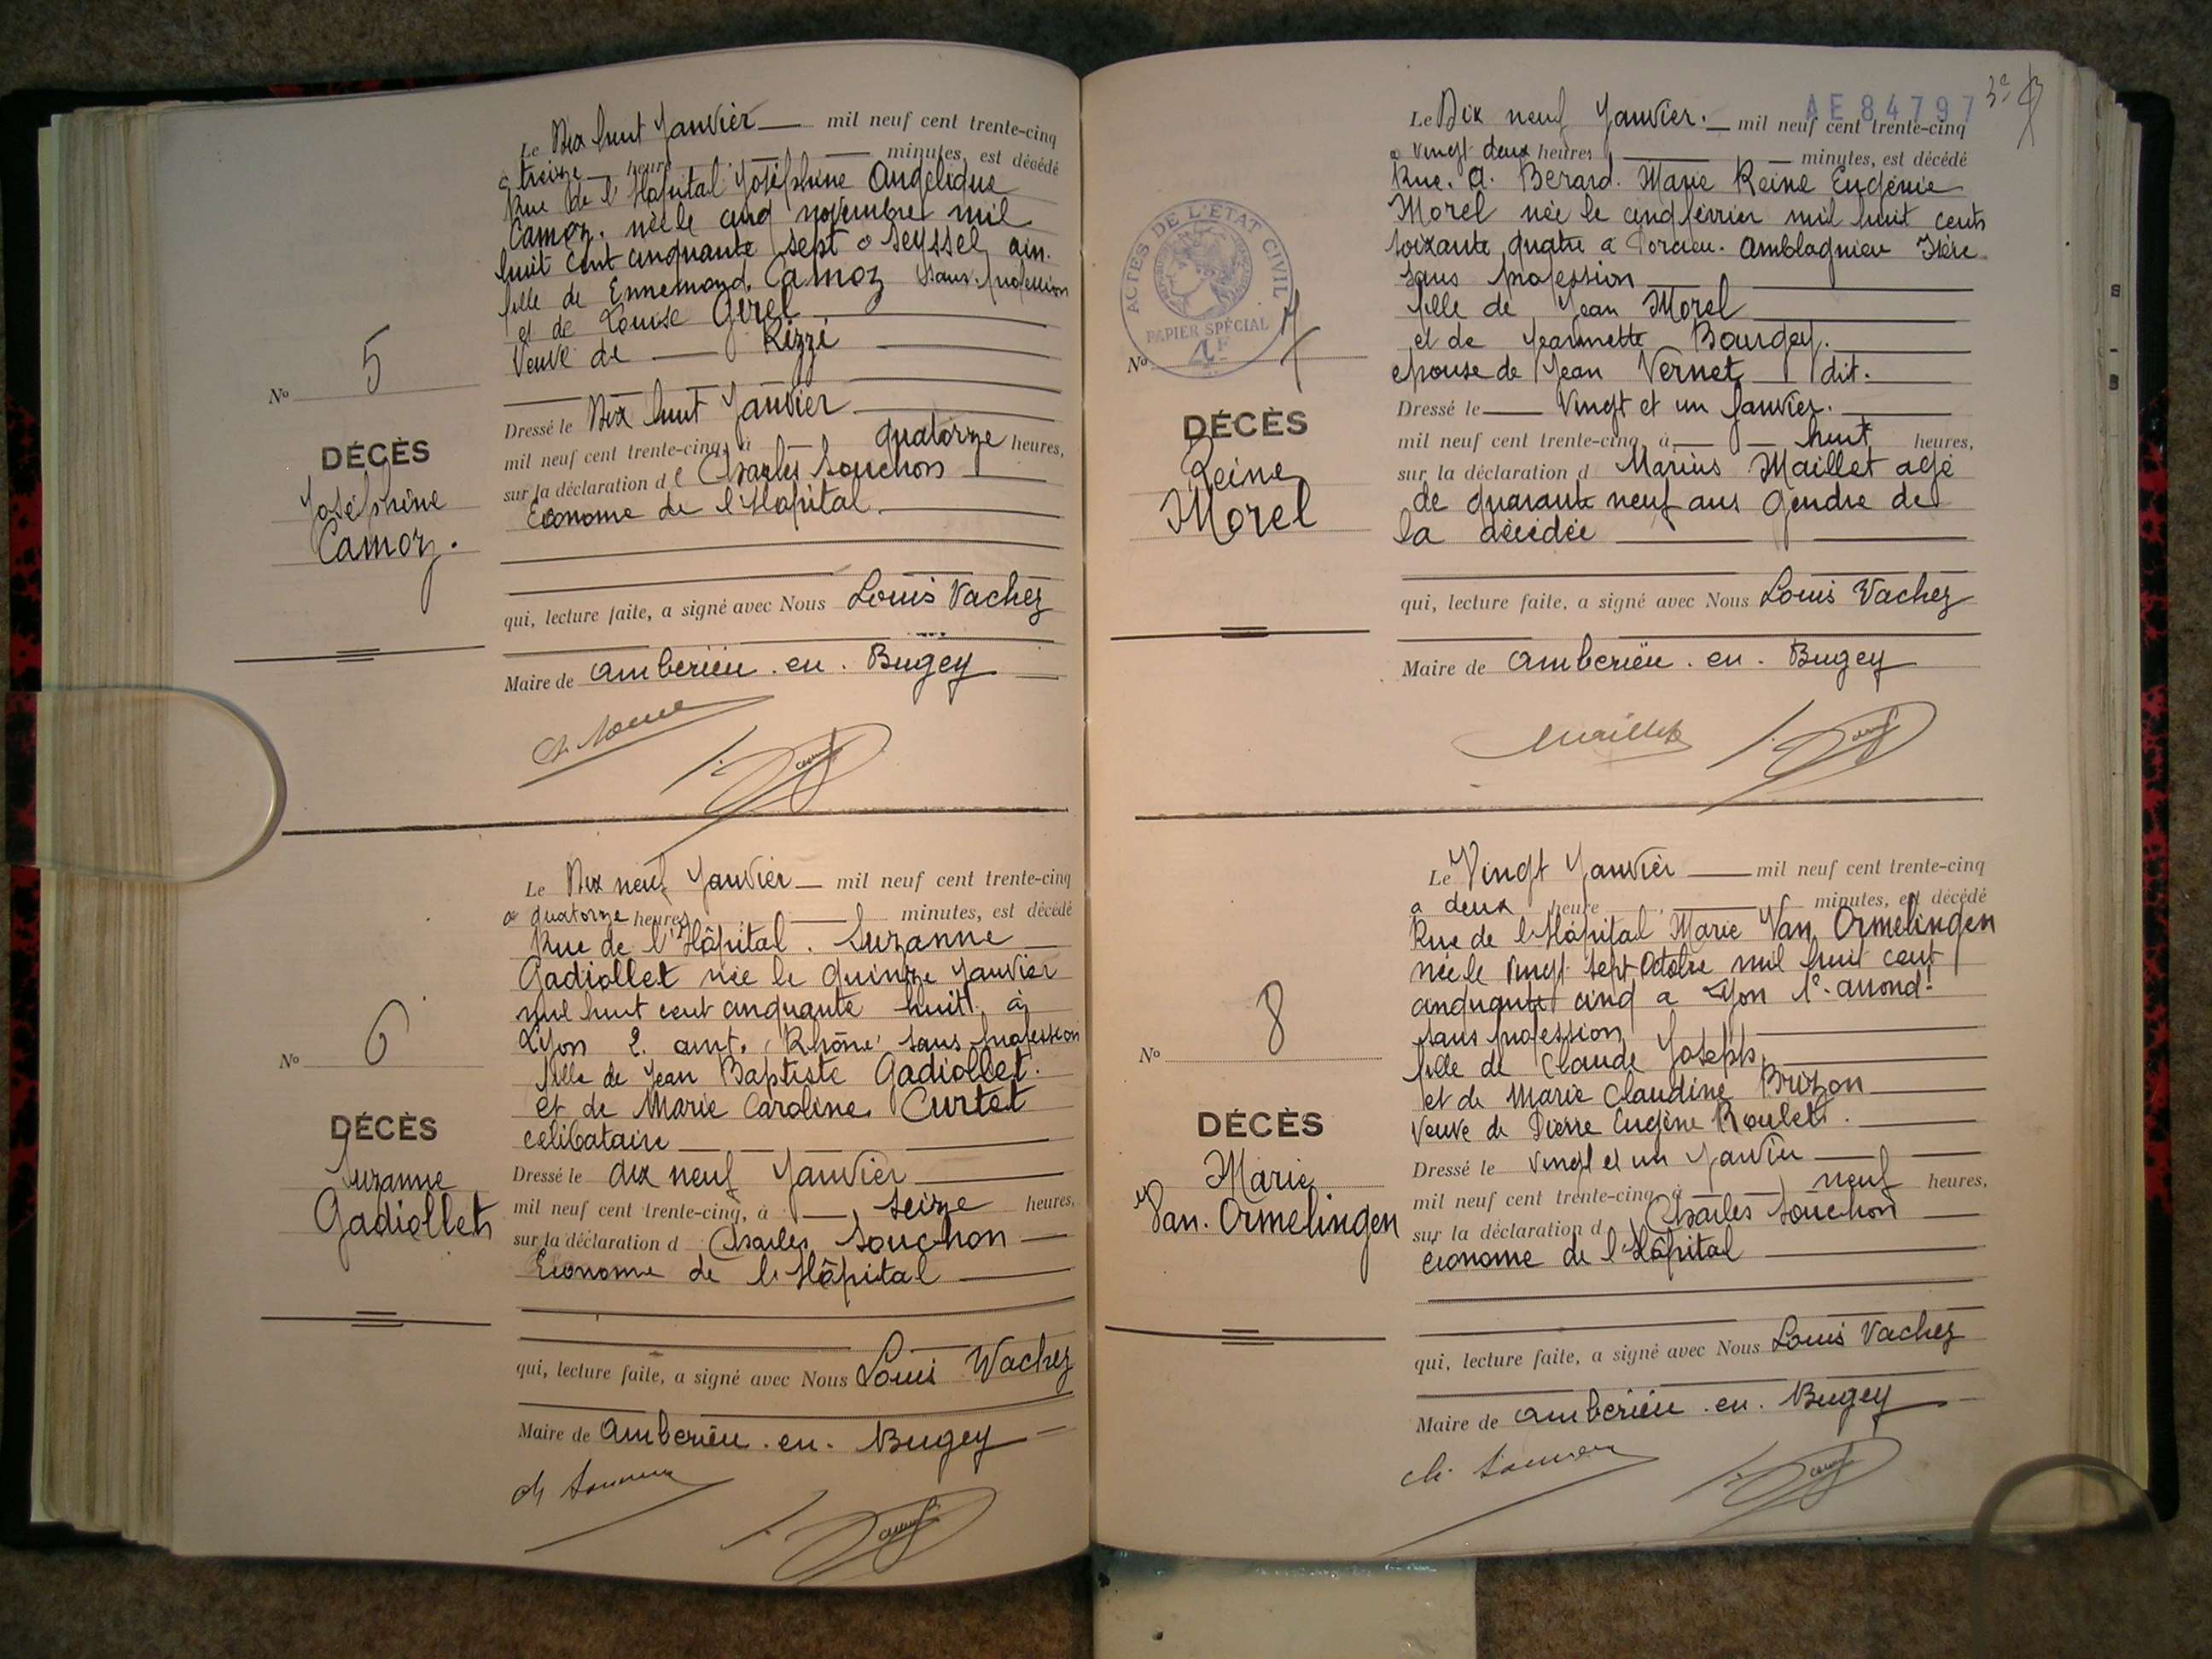 Le Dix huit Janvier mil neuf cent trente-cinq
à treize heure minutes, est décédé
Rue de l'Hopital Joséphine Angélique
Camoz. née le cinq novembre mil
huit cent cinquante sept à Seyssel ain.
fille de Ennemond Camoz sans profession
et de Louise Gerel
Veuve de Rizzi
Dressé le Dix huit Janvier
mil neuf cent trente-cinq, à quatorze heures,
sur la déclaration de Charles Souchon
Econome de l'Hopital
qui, lecture faite, a signé avec Nous Louis Vachez
Maire de Amberieu.en.Bugey
No 5
DÉCÈS
Joséphine
Camoz.
Le Dix neuf Janvier mil neuf cent trente-cinq
à quatorze heures minutes, est décédé
Rue de l'Hôpital. Suzanne
Gadiollet née le quinze Janvier
mil huit cent cinquante huit à
Lyon 2. arrt. Rhône sans profession
fille de Jean Baptiste Gadiollet.
et de Marie Caroline Curtet
celibataire
Dressé le dix neuf Janvier
mil neuf cent trente-cinq, à seize heures,
sur la déclaration d Charles Souchon
Econome de l'Hôpital
qui, lecture faite, a signé avec Nous Louis Wachez
Maire de Amberieu.en.Bugey
No 6
DÉCÈS
Suzanne
Gadiollet
AE 84797
Le Dix neuf Janvier. mil neuf cent trente-cinq
à vingt deux heures minutes, est décédé
Rue. A. Berard. Marie Reine Eugénie
Morel née le cinq février mil huit cents
soixante quatre a Porcieu. Amblagnieu Isère
sans profession
fille de Jean Morel
et de Jeannette Bourgey.
epouse de Jean Vernet dit.
Dressé le Vingt et un Janvier.
mil neuf cent trente-cinq, à huit heures,
sur la déclaration d Marius Maillet agé
de quarante neuf ans Gendre de
la décédée
qui, lecture faite, a signé avec Nous Louis Vachez
Maire de Amberieu.en.Bugey
Maillet
ACTES DE L'ÉTAT CIVIL
PAPIER SPÉCIAL
4F
No 7
DÉCÈS
Reine
Morel
Le Vingt Janvier mil neuf cent trente-cinq
a deux heure minutes, est décédé
Rue de l'Hôpital Marie Van Ormelingen
née le vingt sept Octobre mil huit cent
cinquante cinq a Lyon 1e. arrond!
sans profession
fille de Claude Joseph
et de Marie Claudine Brizon
Veuve de Pierre Eugène Roulet.
Dressé le vingt et un Janvier
mil neuf cent trente-cinq à neuf heures,
sur la déclaration d Charles Souchon
econome de l'Hôpital
qui, lecture faite, a signé avec Nous Louis Vachez
Maire de Amberieu.en.Bugey
No 8
DÉCÈS
Marie
Van. Ormelingen